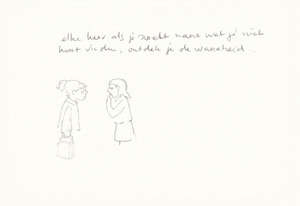 elke keer als je zoekt naar wat je niet
kunt vinden, ontdek je de waarheid..